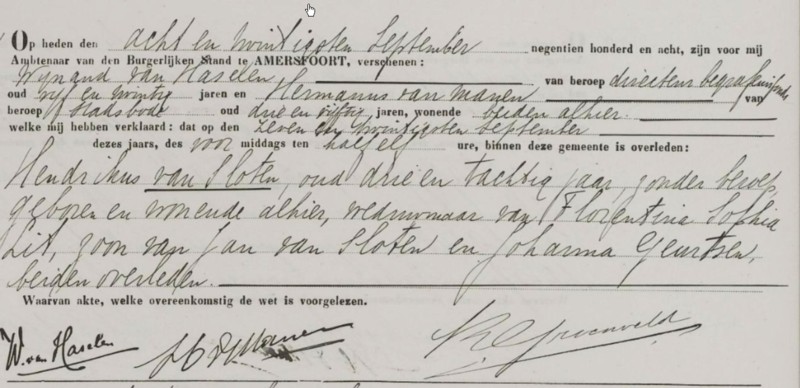 Op heden den acht en twintigsten September negentien honderd en acht, zijn voor mij
Ambtenaar van den Burgerlijken Stand te AMERSFOORT, verschenen:
Wijnand van Haselen van beroep directeur begrafenisfonds
oud vijf en twintig jaren en Hermanus van Manen van
beroep Stadsbode oud drie en vijftig jaren, wonende beiden alhier.
welke mij hebben verklaard: dat op den zeven en twintigsten September
dezes jaars, des voor middags ten half elf ure, binnen deze gemeente is overleden:
Hendrikus van Sloten, oud drie en tachtig jaar, zonder beroep,
geboren en wonende alhier, weduwnaar van Florentina Sophia
Lit, zoon van Jan van Sloten en Johanna Geurtsen,
beiden overleden.
Waarvan akte, welke overeenkomstig de wet is voorgelezen.
W. van Haselen Manen Groenveld